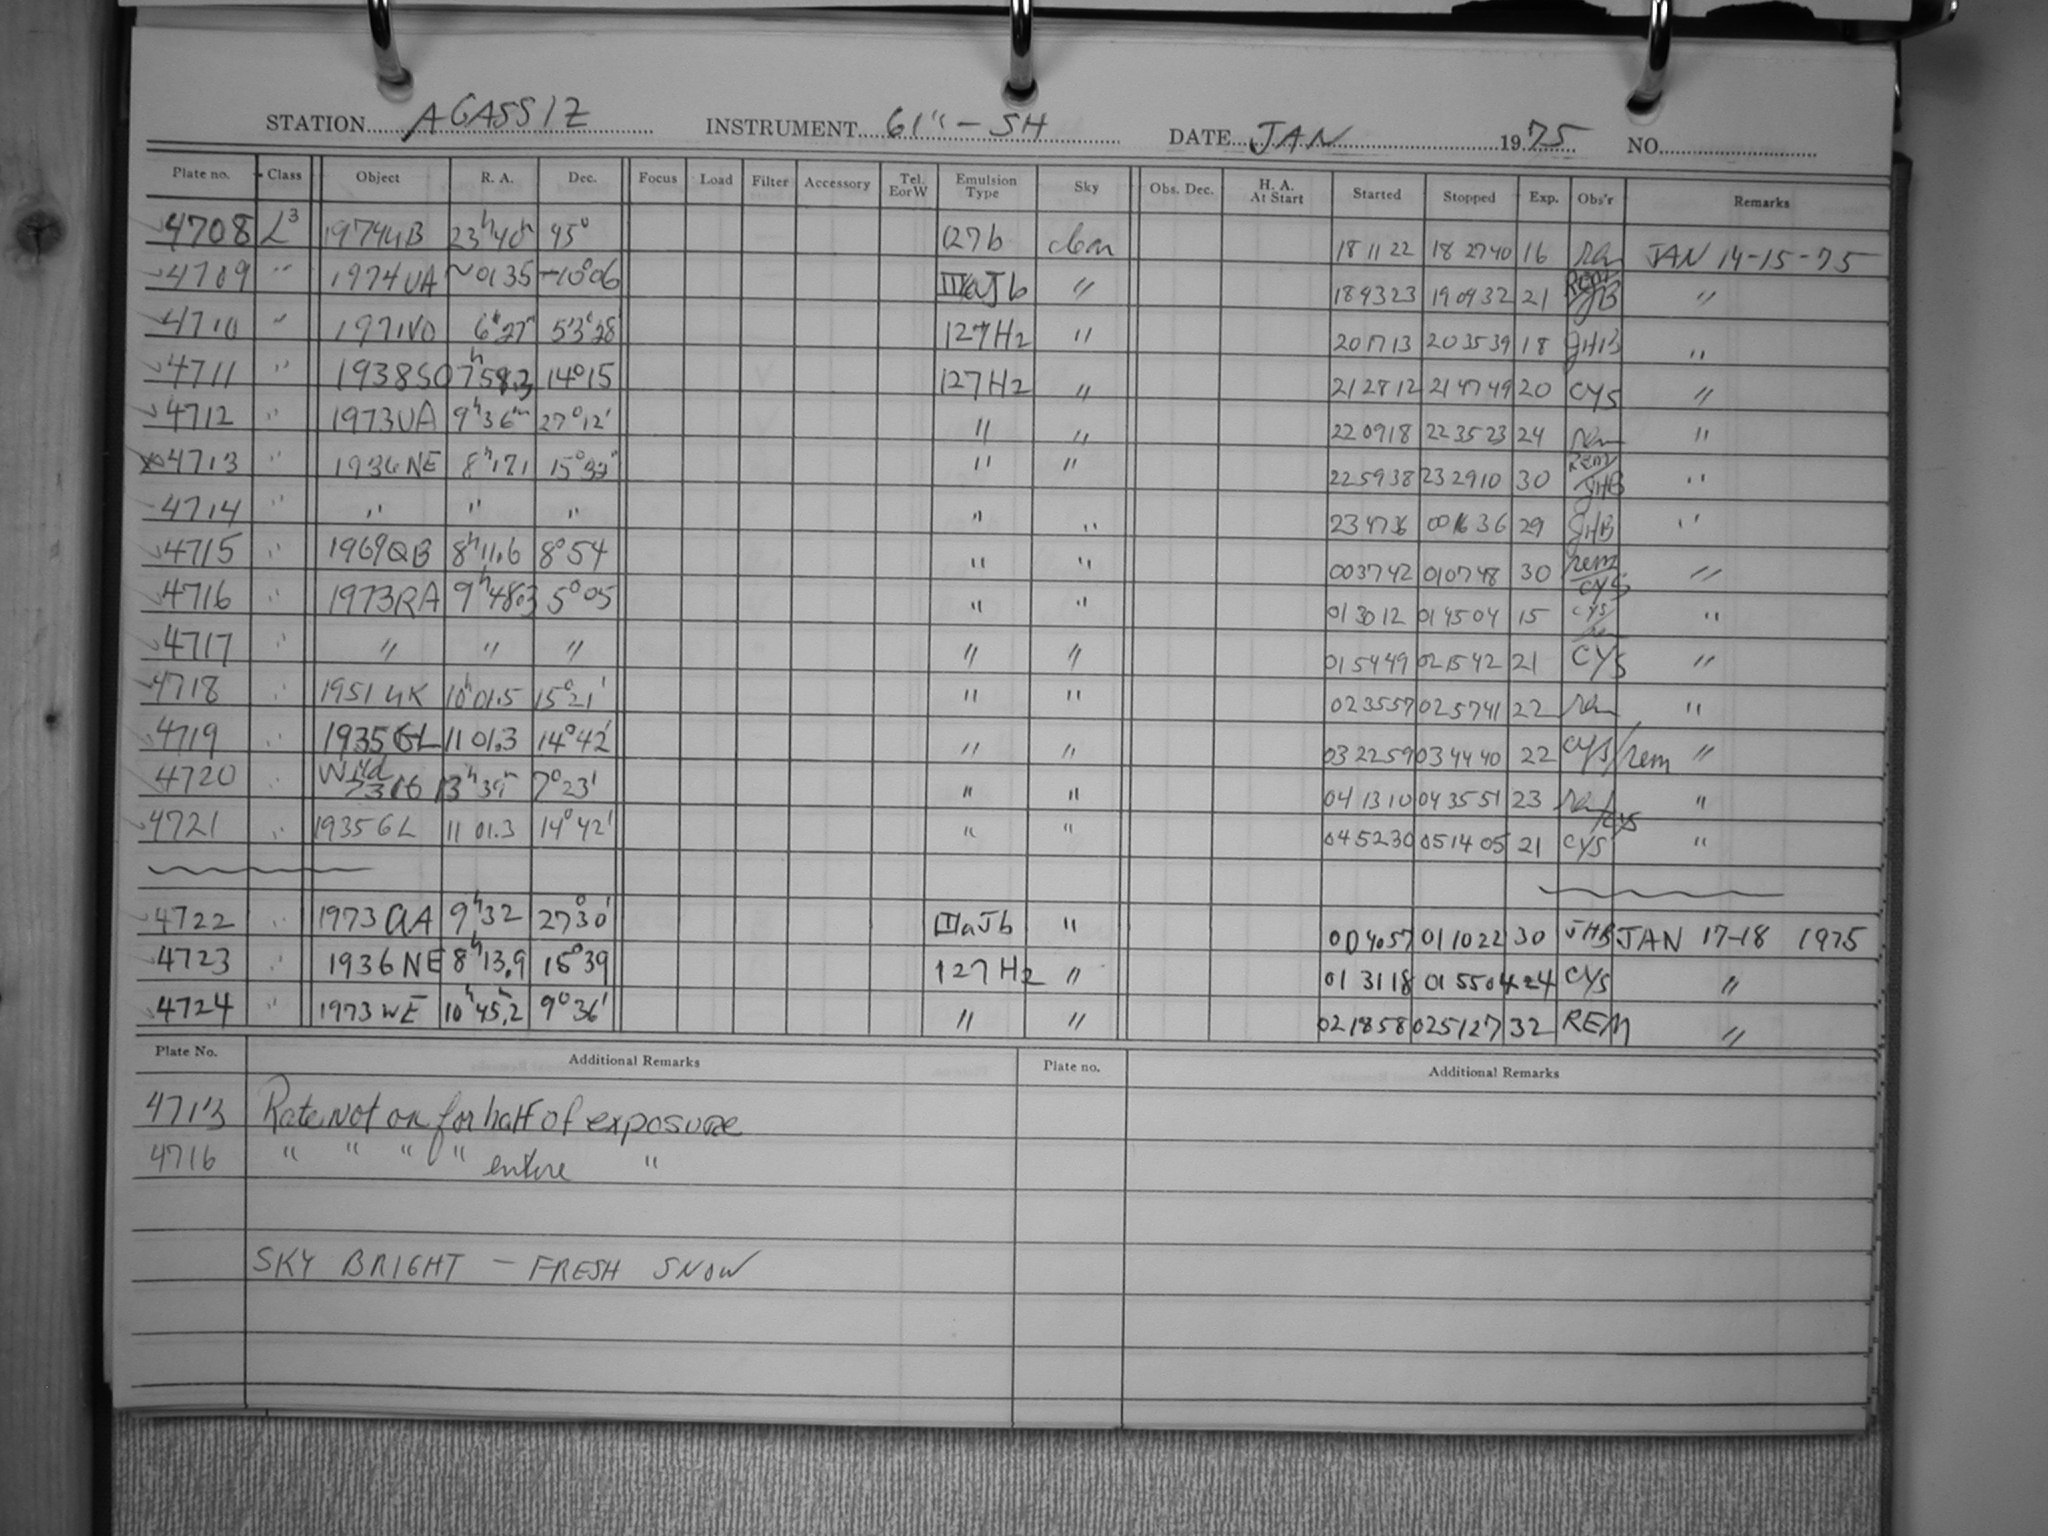 STATION AGASSIZ INSTRUMENT 61" - SH DATE JAN 1975 NO.
Plate no. Class Object R. A. Dec. Focus Load Filter Accessory Tel. E or W Emulsion Type Sky Obs. Dec. H. A. At Start Started Stopped Exp. Obs'r Remarks
4708 L3 1974UB 23h40m 45° 127b clear 18 11 22 18 27 40 16 rem JAN 14-15-75
4709 " 1974UA ~01 35 -10°06 IIIaJb " 18 93 23 19 09 32 21 REM/JHB "
4710 " 1971VO 6h27m 53°28' 127H2 " 20 17 13 20 35 39 18 JHB "
4711 " 1938SO 7h58.3 14°15 127H2 " 21 28 12 21 47 49 20 CYS "
4712 " 1973UA 9h36m 27°12' " " 22 09 18 22 35 23 24 rem "
4713 " 1936NE 8h17.1 15°32' " " 22 59 38 23 29 10 30 REM/JHB "
4714 " " " " " " 23 47 36 00 16 36 29 JHB "
4715 " 1969QB 8h11.6 8°54 " " 00 37 42 01 07 48 30 rem/CYS "
4716 " 1973RA 9h48.3 5°05 " " 01 30 12 01 45 04 15 cys/rem "
4717 " " " " " " 01 54 49 02 15 42 21 CYS "
4718 " 1951UK 10h01.5 15°21' " " 02 35 57 02 57 41 22 rem "
4719 " 1935GL 11 01.3 14°42' " " 03 22 59 03 44 40 22 CYS/rem "
4720 " Wild 13h39m 7°23' " " 04 13 10 04 35 51 23 rem/cys "
4721 " 1935GL 11 01.3 14°42' " " 04 52 30 05 14 05 21 CYS "
4722 " 1973 UA 9h32 27°30' IIIaJb " 00 40 57 01 10 22 30 JHB JAN 17-18 1975
4723 " 1936NE 8h13.9 15°39 127H2 " 01 31 18 01 55 04 24 CYS "
4724 " 1973WE 10h45.2 9°36' " " 02 18 58 02 51 27 32 REM "
Plate No. Additional Remarks Plate no. Additional Remarks
4713 Rate not on for half of exposure
4716 " " " " entire "
SKY BRIGHT - FRESH SNOW